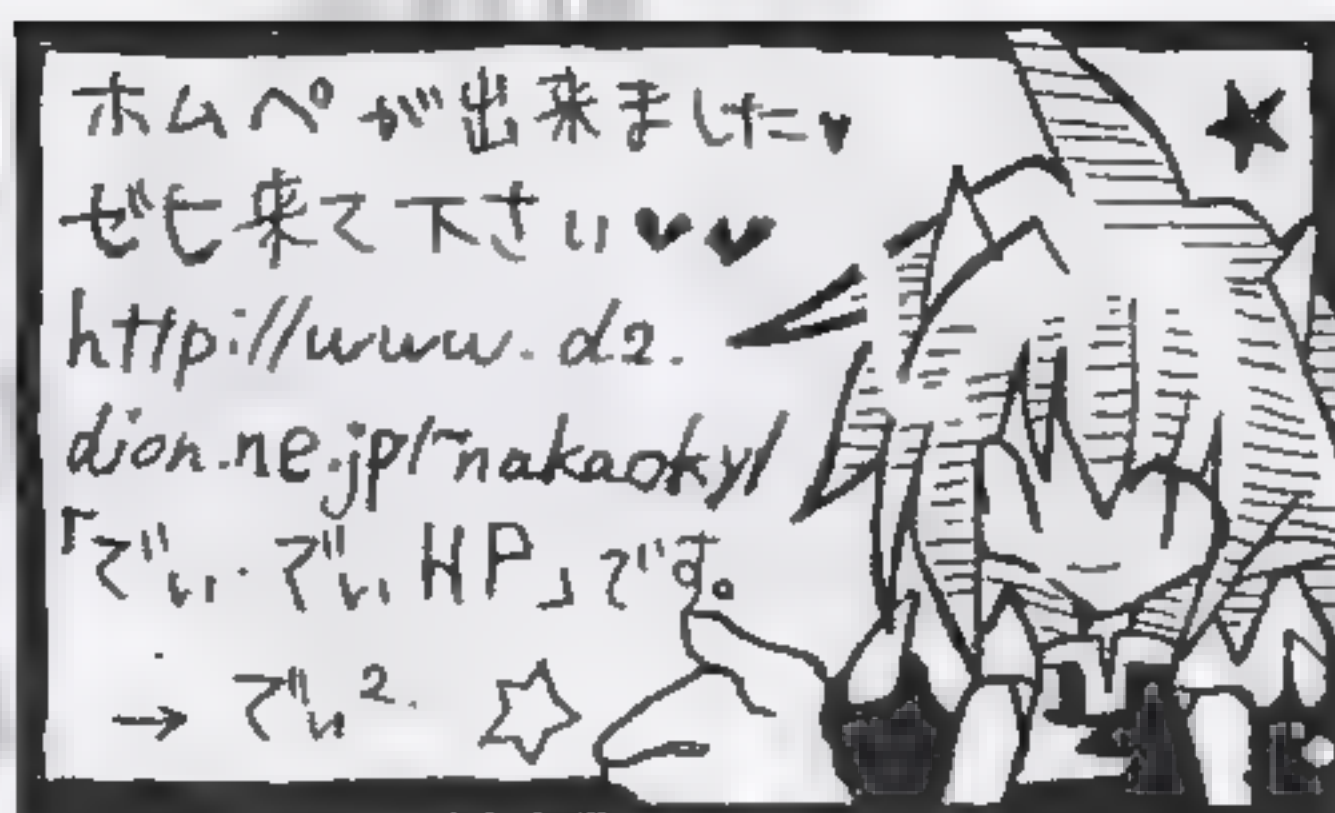 ホムペが出来ました♥
ゼヒ来て下さい♥♥
http://www.d2.
dion.ne.jp/~nakaoky/
「でぃ・でぃHP」です。
→ でぃ2.